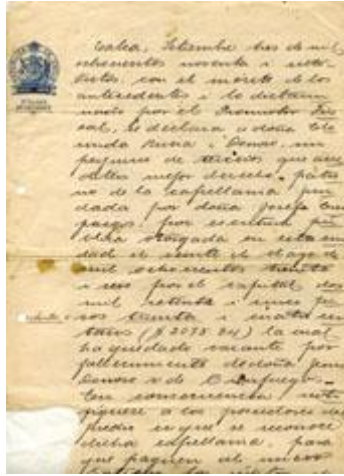 Talca, Setiembre tres de mil
ochocientos noventa i
Vistos: con el mérito de los
antecedentes i lo dictami
nado por el Promotor Fis
cal, se declara a doña
i Donoso, sin
perjuicio de terceros que acre
diten mejor derecho, patro
no de la capellanía fun
dada por doña Josefa Cien
fuegos por escritura pú
blica otorgada en esta ciu
dad el veinte de
mil ochocientos treinta
i seis por el capital dos
mil setenta i cinco pe
sos treinta i cuatro cen
tavos ($ 2075 34) la cual
ha quedado vacante por
fallecimiento de doña
Donoso v. de Cienfuegos.
En consecuencia noti
fíquese a los poseedores del
predio en que se reconoce
dicha capellanía, para
que paguen al nuevo